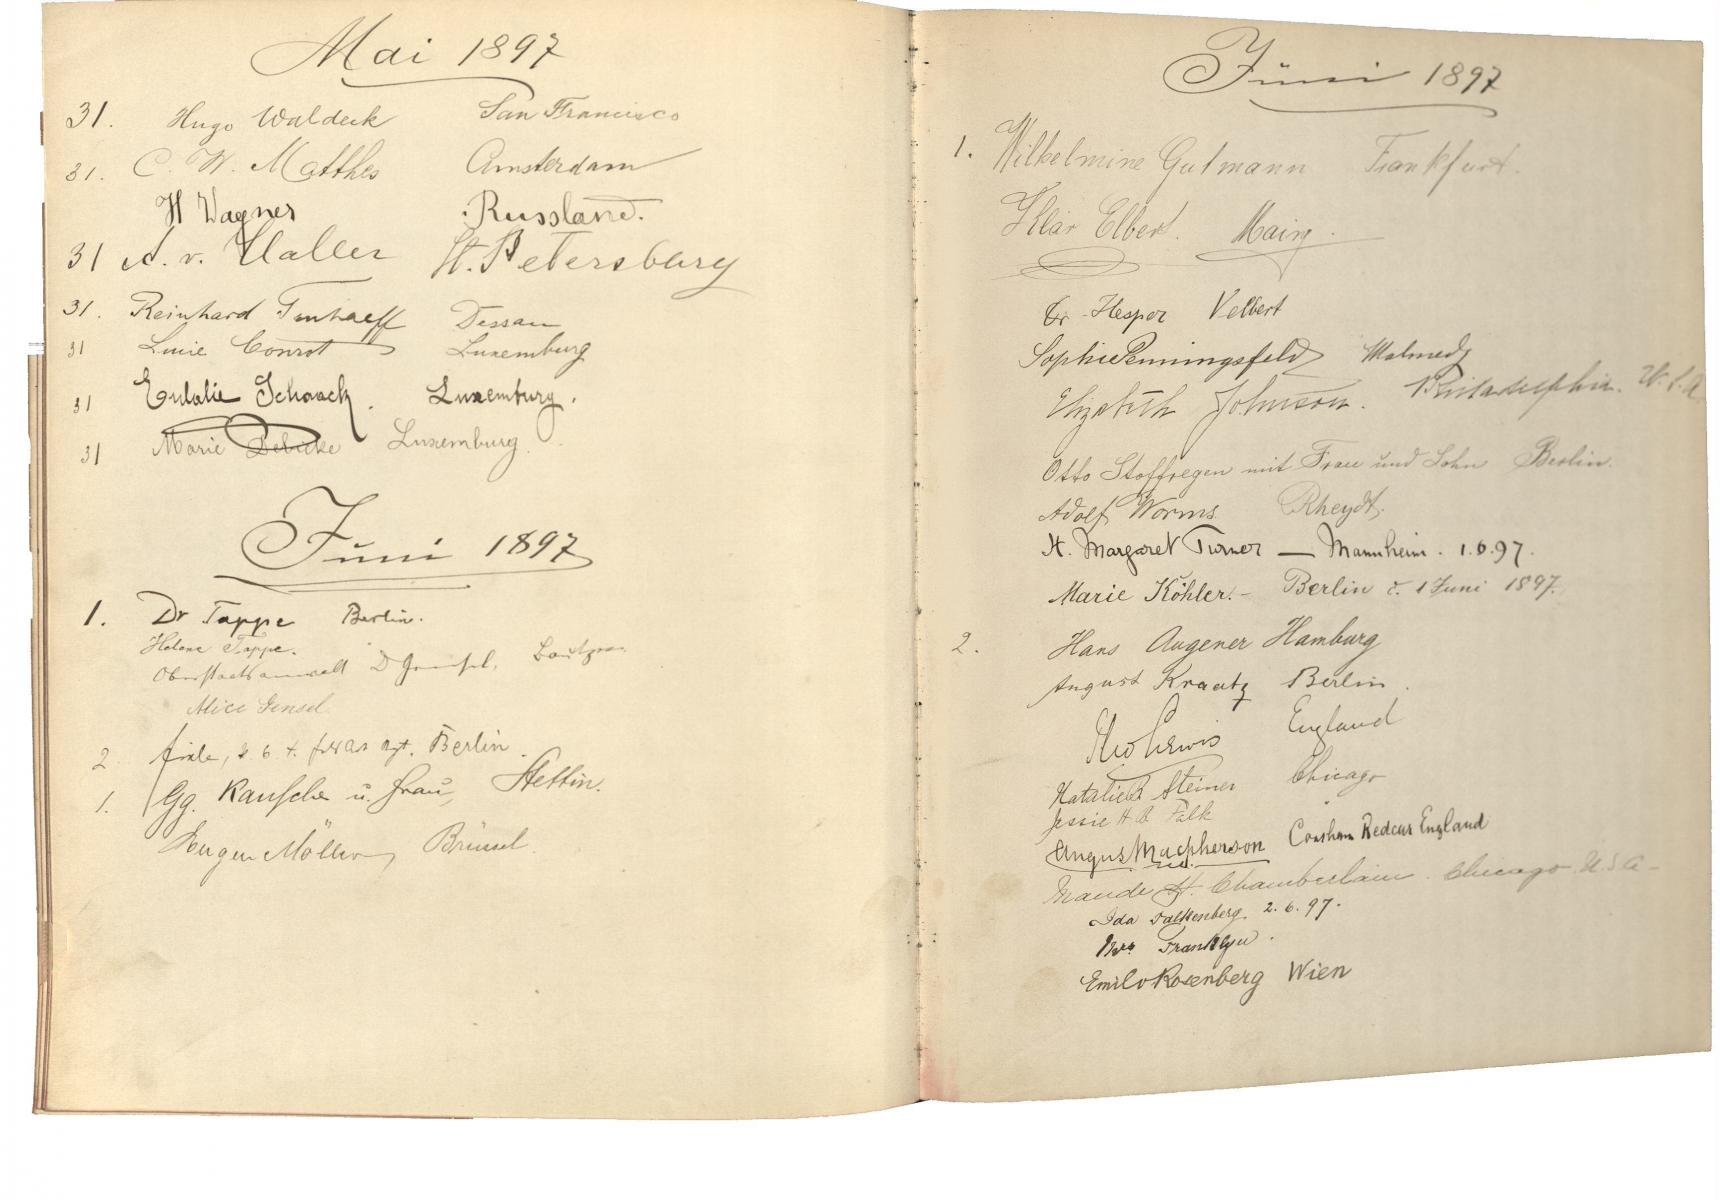 Mai 1897
31. Hugo Waldeck San Francisco
31. C. W. Matthes Amsterdam
H Wagner Russland.
31 A. v. Haller St. Petersburg
31. Reinhard Dessau
31 Lucie Conrot Luxemburg
31 Eulalie Schaack. Luxemburg.
31 Marie Luxemburg.
Juni 1897
1. Dr Tappe Berlin.
Helene Tappe.
Oberstaatsanwalt D Gensel, Bautzen
Alice Gensel
2. Berlin.
1. Gg. Kausche u. Frau, Stettin.
Eugen Möller, Brüssel.
Juni 1897
1. Wilhelmine Gutmann Frankfurt.
Elbert. Mainz.
Dr. Hesper Velbert
Sophie Penningsfeld Malmedy
Elizabeth Johnson. Philadelphia. U. S. A.
Otto Stoffregen mit Frau und Sohn Berlin.
Adolf Worms Rheydt.
H. Margaret Turner — Mannheim. 1.6.97.
Marie Köhler. - Berlin d. 1 Juni 1897.
2. Hans Augener Hamburg
August Kraatz Berlin.
Lewis England
Natalie B Steiner Chicago
Jessie H B Falk
Angus Macpherson Coatham Redcar England
Maude H. Chamberlain. Chicago. U.S.A-
Ida Falkenberg 2.6.97.
Mrs Franklyn.
Emil Rosenberg Wien